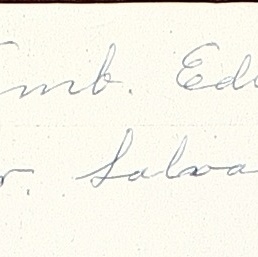 mb. Ed
r. Salva